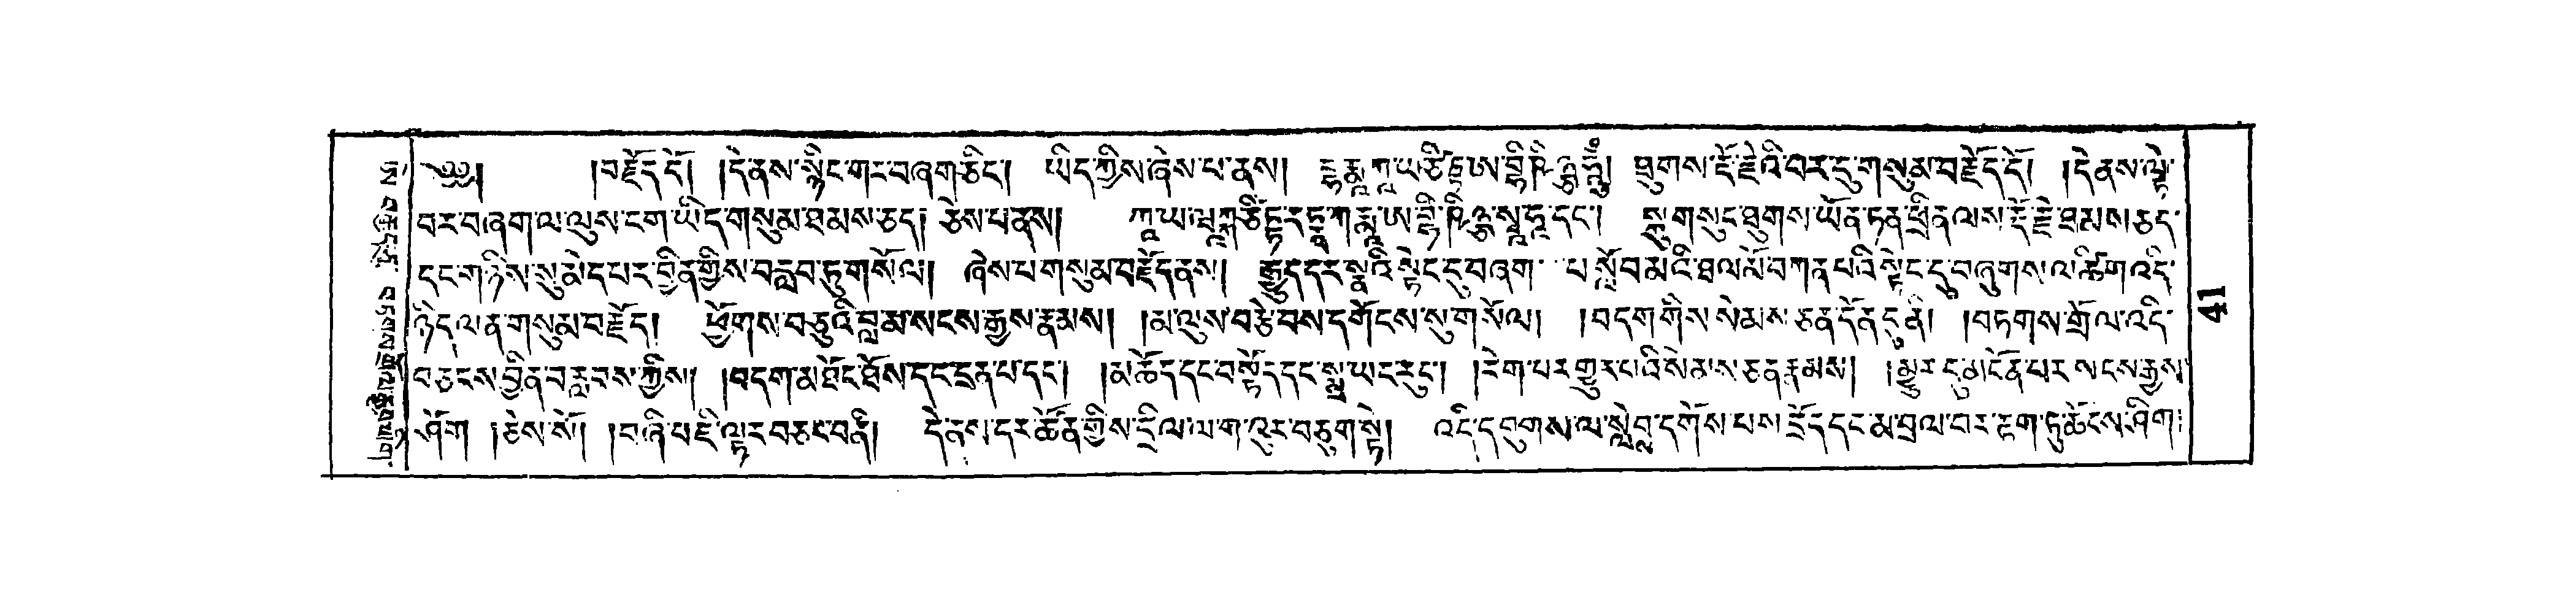 ༄༅། །བརྗོད་དོ། །དེ་ནས་སྙིང་གར་བཞག་ཅིང་། ཡིད་ཀྱིས་ཞེས་པ་ནས། ཐུགས་རྡོ་རྗེའི་བར་དུ་གསུམ་བརྗོད་དོ། །དེ་ནས་ལྟེ་
བར་བཞག་ལ་ལུས་ངག་ཡིད་གསུམ་ཐམས་ཅད། ཅེས་པ་ནས། སྐུ་གསུང་ཐུགས་ཡོན་ཏན་ཕྲིན་ལས་རྡོ་རྗེ་ཐམས་ཅད་
དང་གཉིས་སུ་མེད་པར་བྱིན་གྱིས་བརླབ་ཏུ་གསོལ། ཞེས་པ་གསུམ་བརྗོད་ནས། རྒྱུད་དར་སྣའི་སྟེང་དུ་བཞག པ་སློབ་མའི་ཐལ་མོ་བཀན་པའི་སྟེང་དུ་བཞུགས་ལ་ཚིག་འདི་
ཉིད་ལན་གསུམ་བརྗོད། ཕྱོགས་བཅུའི་བླ་མ་སངས་རྒྱས་རྣམས། །མ་ལུས་བརྩེ་བས་དགོངས་སུ་གསོལ། །བདག་གིས་སེམས་ཅན་དོན་དུ་ནི། །བཏགས་གྲོལ་འདི་
བཅངས་བྱིན་བརླབས་ཀྱིས། །བདག་མཐོང་ཐོས་དང་དྲན་པ་དང་། །མཆོད་དང་བསྟོད་དང་སྨྲ་ཡང་རུང་། །རེག་པར་གྱུར་པའི་སེམས་ཅན་རྣམས། །མྱུར་དུ་མངོན་པར་སངས་རྒྱས་
ཤོག །ཅེས་སོ། །བཞི་པ་ཇི་ལྟར་བཅང་བ་ནི། དེ་ནས་དར་ཚོན་གྱིས་དྲིལ་ལ་ག་འུར་བཅུག་སྟེ། འདི་དབུགས་ལ་སླེབ་དགོས་པས་དྲོད་དང་མ་བྲལ་བར་རྟག་ཏུ་ཆོངས་ཤིག